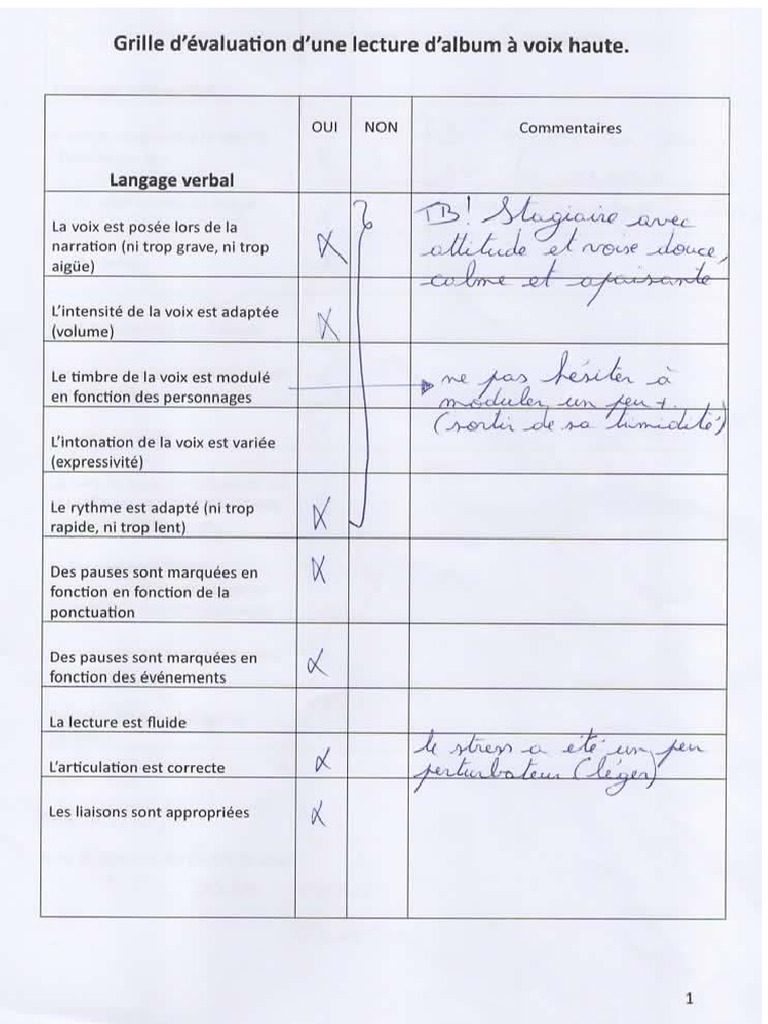 Grille d'évaluation d'une lecture d'album à voix haute.
OUI NON Commentaires
Langage verbal
La voix est posée lors de la
narration (ni trop grave, ni trop
aigüe)
X
TB! Stagiaire avec
attitude et voise douce,
calme et apaisante
L'intensité de la voix est adaptée
(volume)
X
Le timbre de la voix est modulé
en fonction des personnages
ne pas hésiter à
moduler un peu +.
(sortir de sa timidité)
L'intonation de la voix est variée
(expressivité)
Le rythme est adapté (ni trop
rapide, ni trop lent)
X
Des pauses sont marquées en
fonction en fonction de la
ponctuation
X
Des pauses sont marquées en
fonction des événements
X
La lecture est fluide
L'articulation est correcte
X
le stress a été un peu
perturbateur (léger)
Les liaisons sont appropriées
X
1